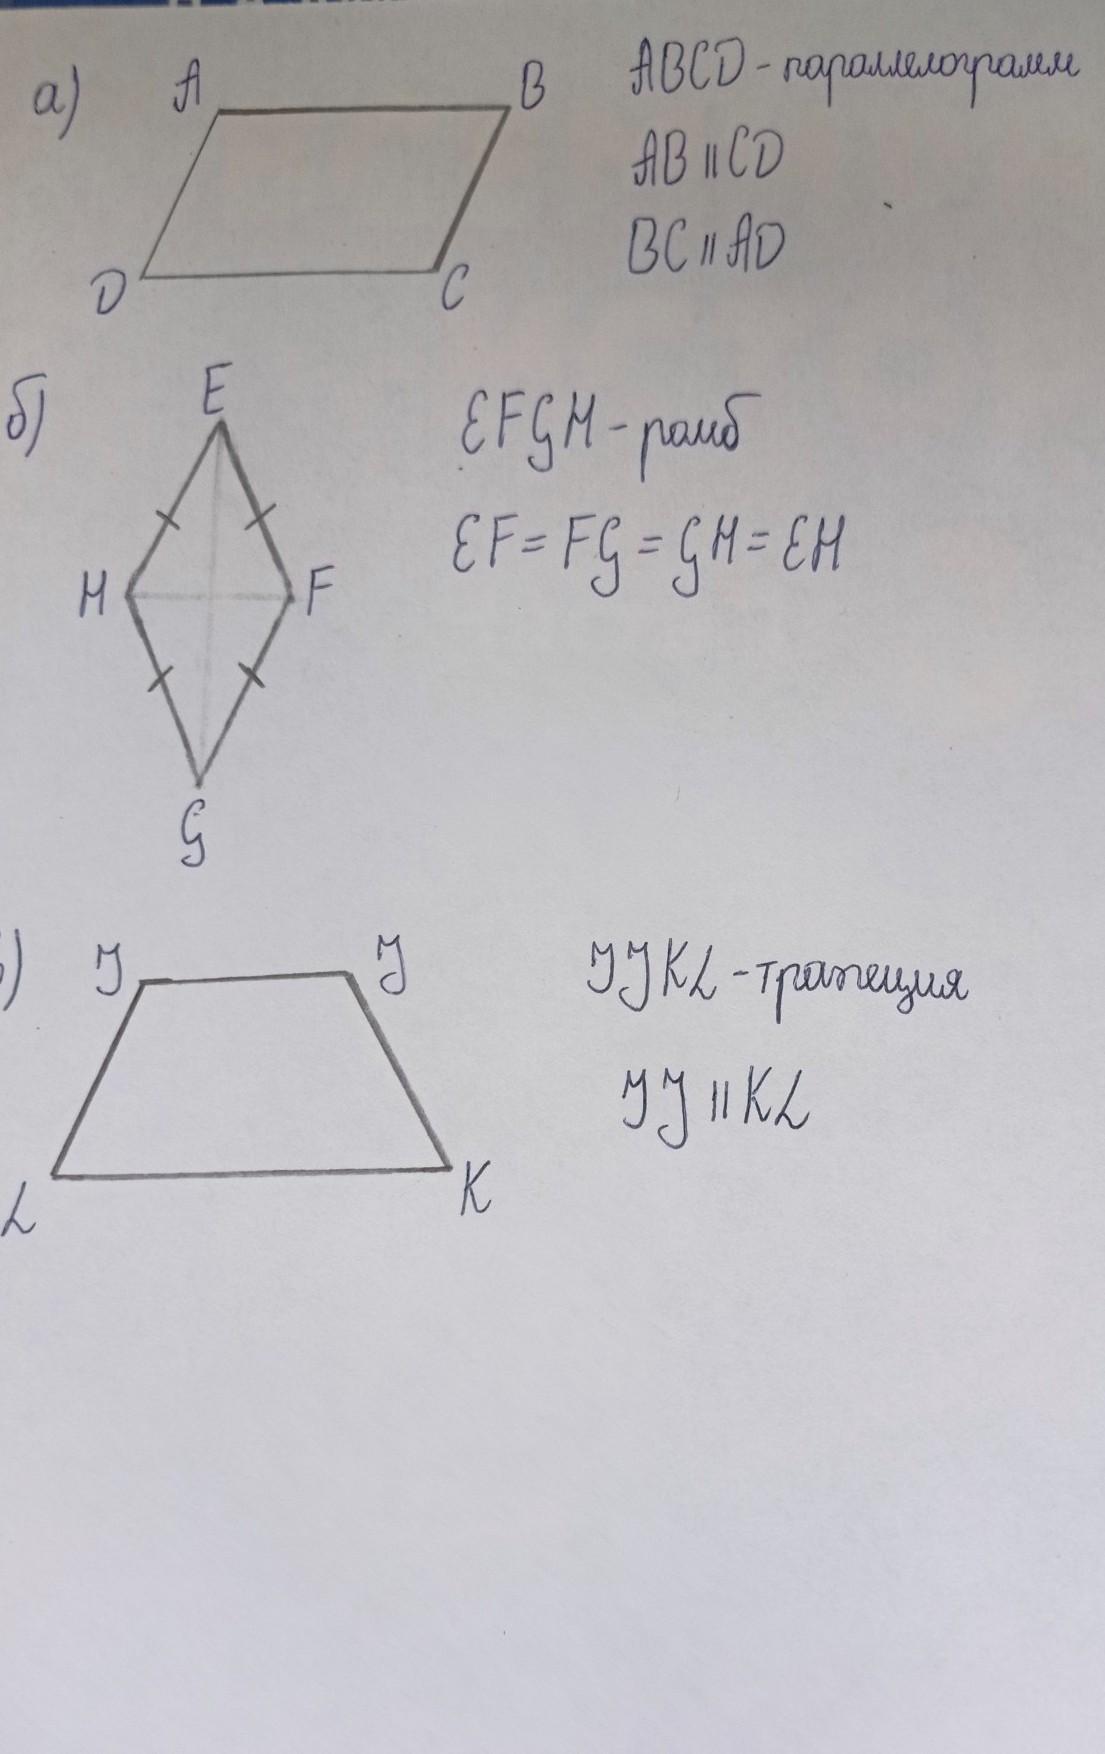 а) A B ABCD - параллелограмм
AB || CD
BC || AD
D C
б) E EFGH - ромб
EF = FG = GH = EH
H F
G
) I J IJKL - трапеция
IJ || KL
L K